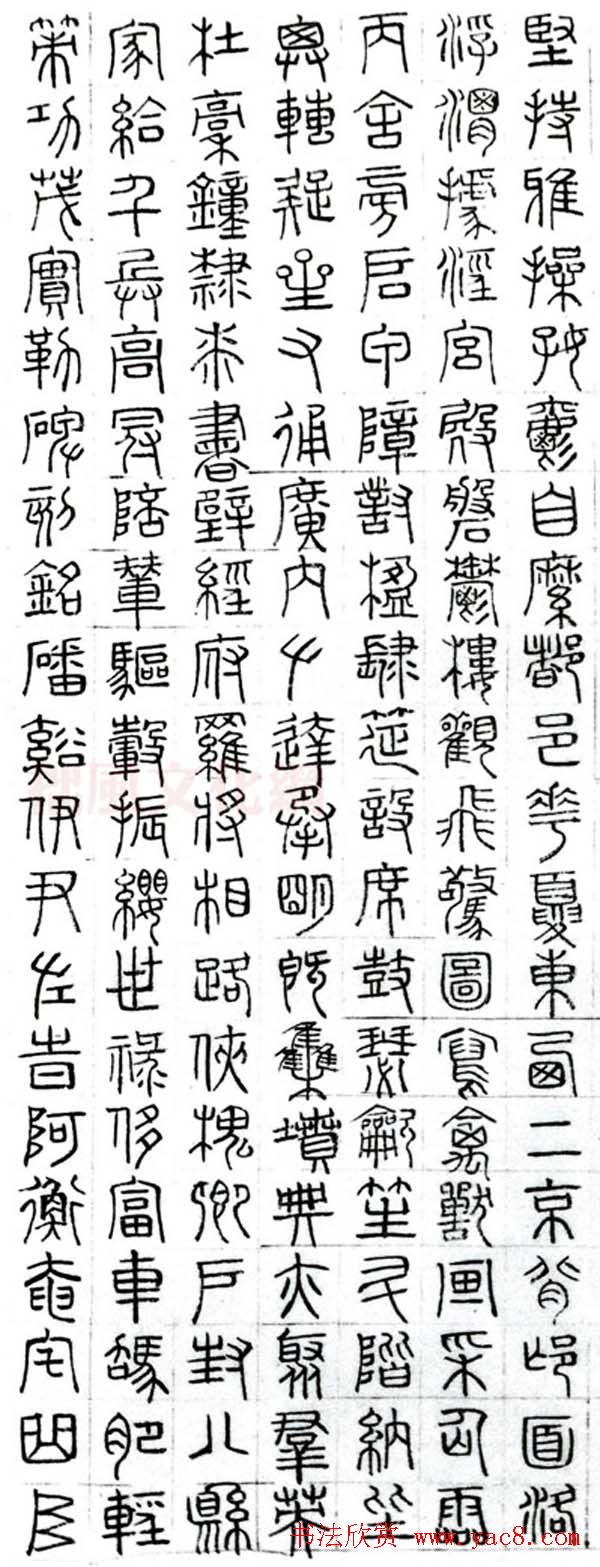 堅持雅操好爵自縻都邑華夏東西二京背邙面洛
浮渭據涇宮殿磐鬱樓觀飛驚圖寫禽獸畫采仙靈
丙舍旁啟甲障對楹肆筵設席鼓瑟龡笙升階納陛
弁轉疑星右通廣內左達承明既集墳典亦聚群英
杜稾鐘隸桼書壁經府羅將相路俠槐卿戶封八縣
家給千兵高冠陪輦驅轂振纓世祿侈富車駕肥輕
策功茂實勒碑刻銘磻谿伊尹佐時阿衡奄宅曲阜
书法欣赏 www.yac8.com